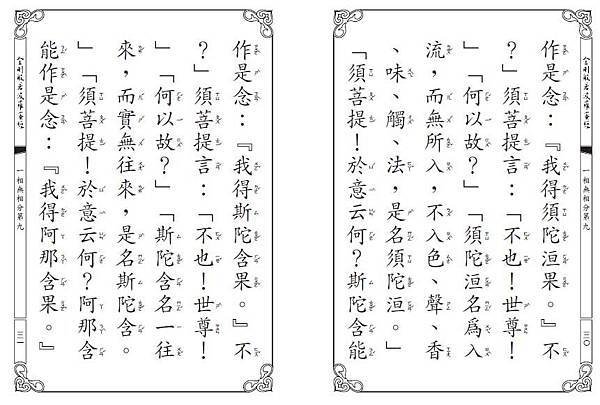 金剛般若波羅蜜經
一相無相分第九
三〇
作是念：『我得須陀洹果。』不
？」須菩提言：「不也！世尊！
」「何以故？」「須陀洹名爲入
流，而無所入，不入色、聲、香
、味、觸、法，是名須陀洹。」
「須菩提！於意云何？斯陀含能
作是念：『我得斯陀含果。』不
？」須菩提言：「不也！世尊！
」「何以故？」「斯陀含名一往
來，而實無往來，是名斯陀含。
」「須菩提！於意云何？阿那含
能作是念：『我得阿那含果。』
金剛般若波羅蜜經
一相無相分第九
三一